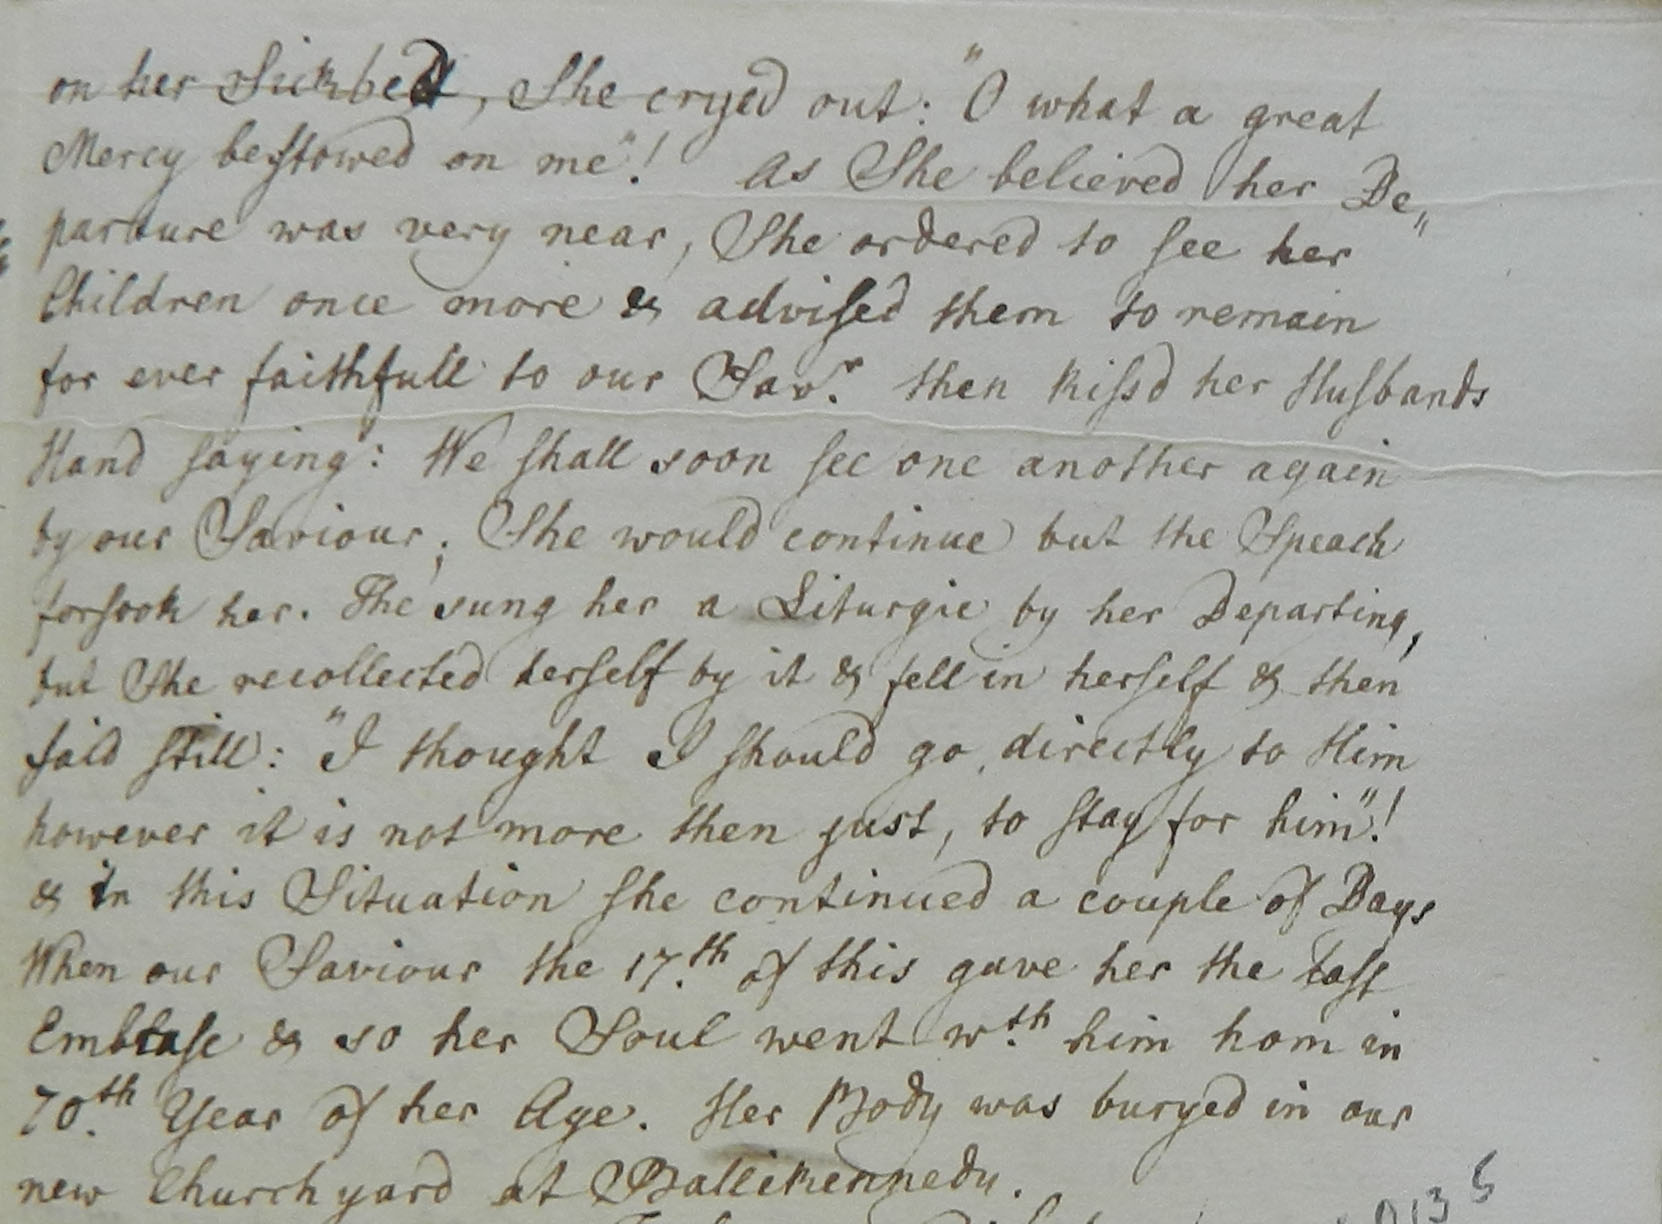 on her Sickbed, She cryed out: "O what a great
Mercy bestowed on me"! As She believed her De"
parture was very near, She ordered to see her
Children once more & advised them to remain
for ever faithfull to our Savr. then kiss'd her Husbands
Hand saying: We shall soon see one another again
by our Saviour; She would continue but the Speach
forsook her. The sung her a Liturgie by her Departing,
but She recollected herself by it & fell in herself & then
said still: "I thought I should go directly to Him
however it is not more then just, to stay for him"!
& in this Situation she continued a couple of Days
When our Saviour the 17.th of this gave her the last
& so her Soul went w.th him hom in
70.th Year of her Age. Her Body was buryed in our
new Churchyard at Ballikennedy.